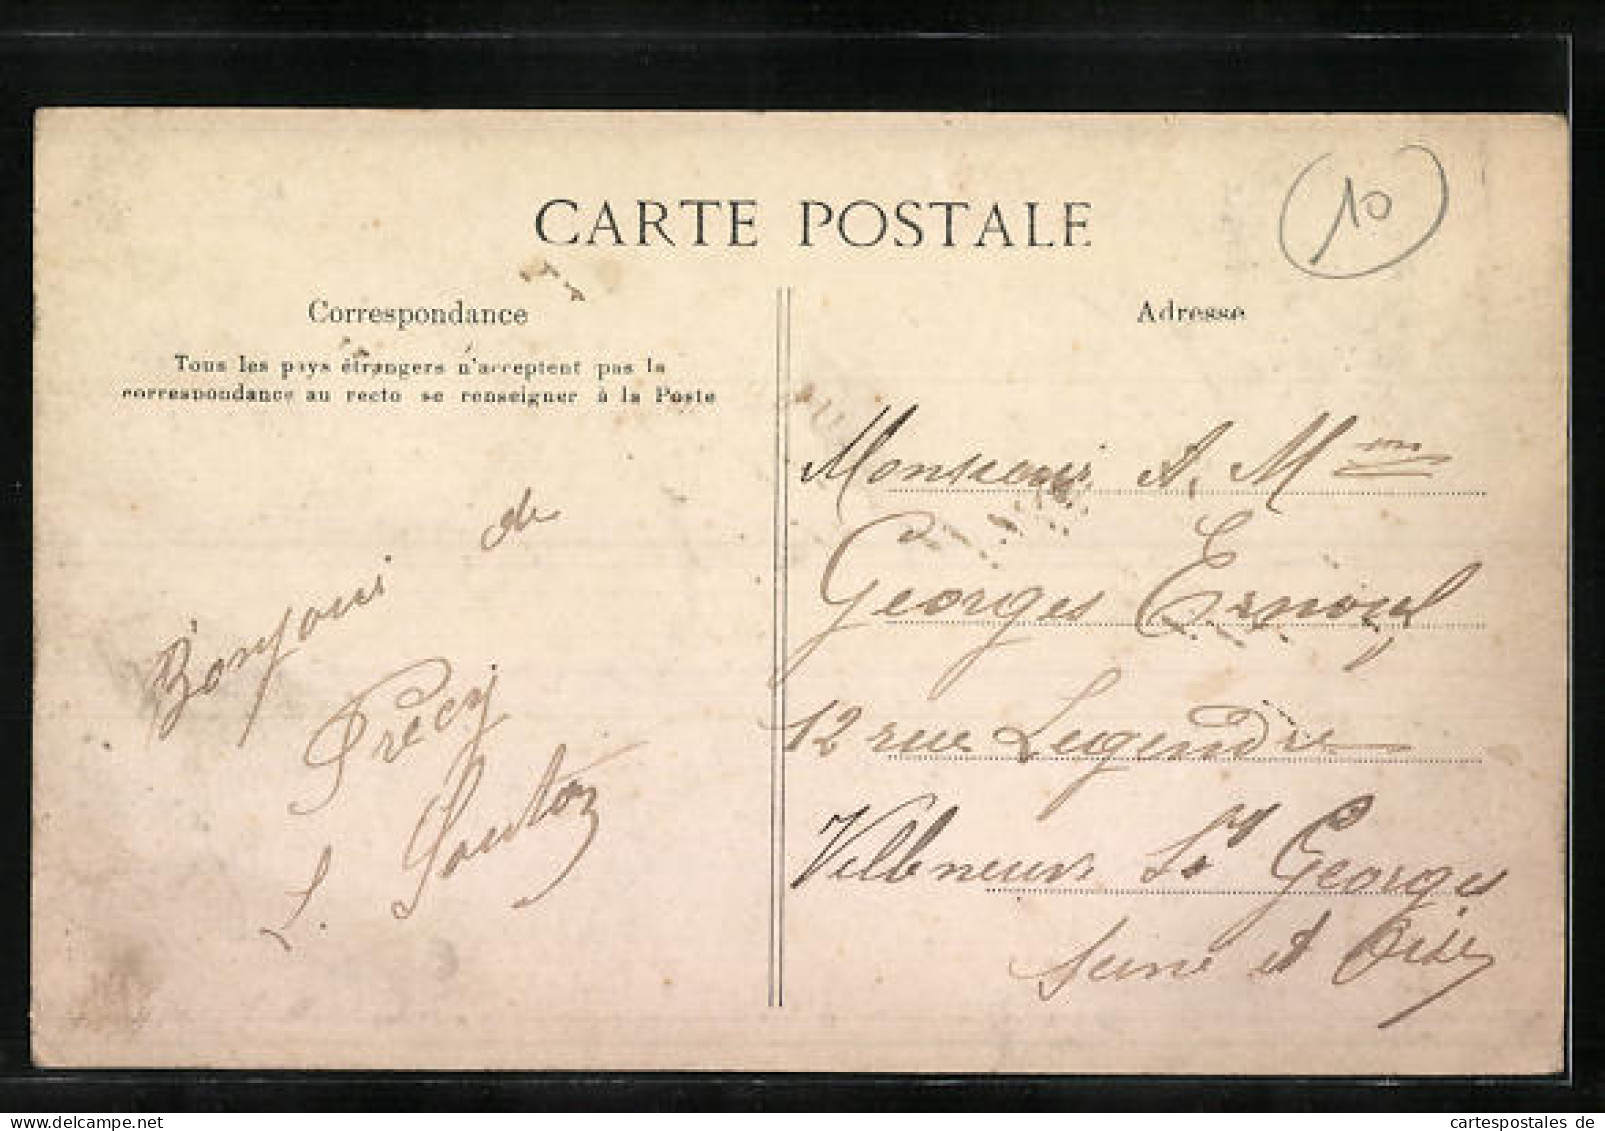 CARTE POSTALE
10
Correspondance
Tous les pays étrangers n'acceptent pas la
correspondance au recto se renseigner à la Poste
Bonjour de
Précy
L.
Adresse
Monsieur et Mme
Georges Ernoul
12 rue Legendre
Villeneuve St Georges
Seine et Oise
cartespostales de